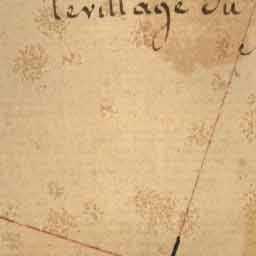 le village du